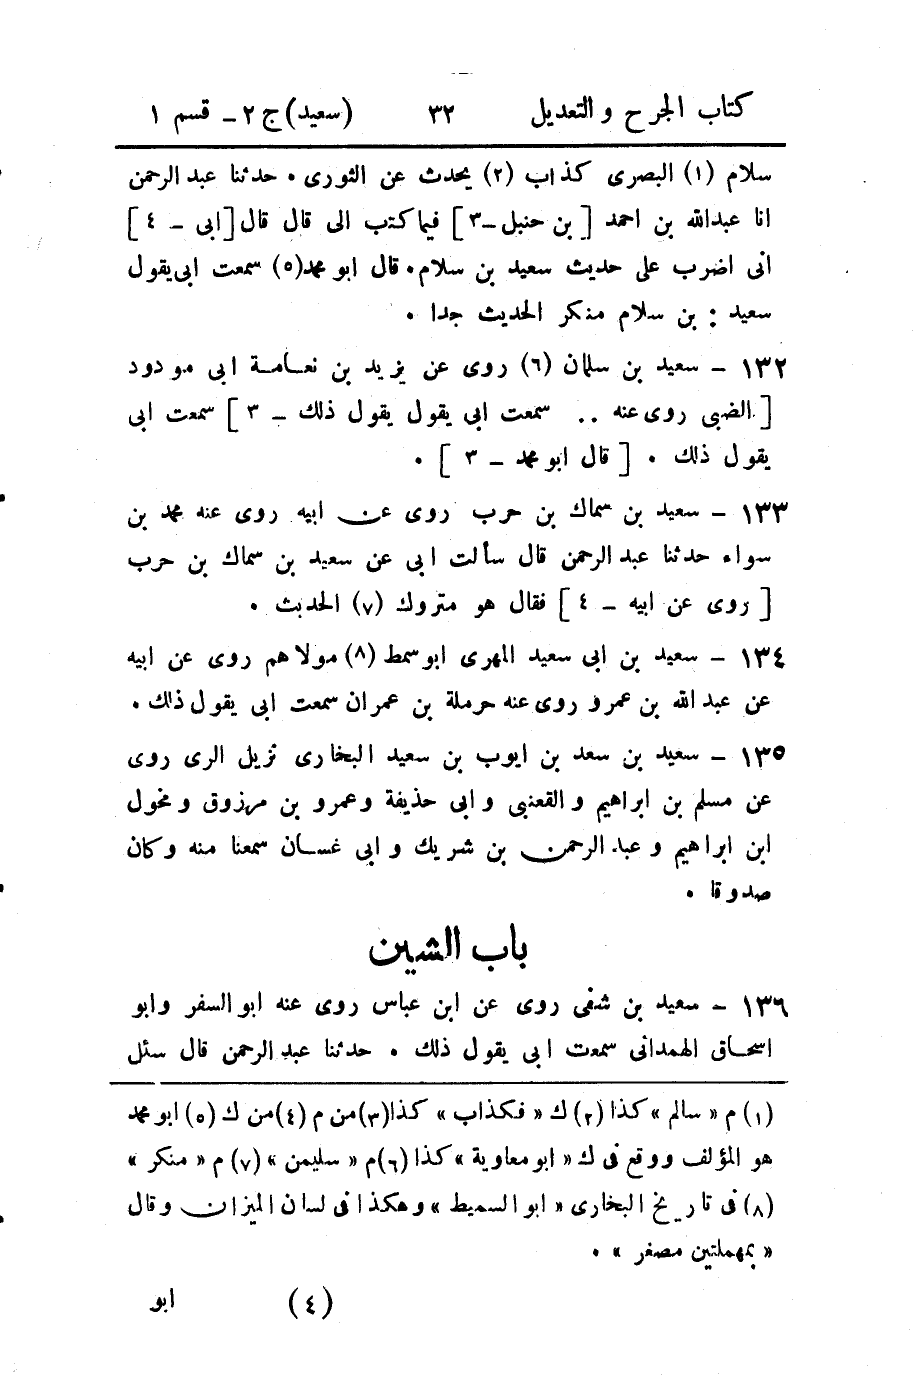 كتاب الجرح والتعديل ٣٢ (سعيد) ج ٢ - قسم ١
سلام (١) البصرى كذاب (٢) يحدث عن الثورى . حدثنا عبد الرحمن
انا عبدالله بن احمد [ بن حنبل -٣ ] فيما كتب الى قال قال [ ابى - ٤ ]
انى اضرب على حديث سعيد بن سلام . قال ابو محمد (٥) سمعت ابى يقول
سعيد : بن سلام منكر الحديث جدا .
١٣٢ - سعيد بن سلمان (٦) روى عن يزيد بن نعامة ابى مودود
[ الضبى روى عنه .. سمعت ابى يقول يقول ذلك - ٣ ] سمعت ابى
يقول ذلك . [ قال ابو محمد - ٣ ] .
١٣٣ - سعيد بن سماك بن حرب روى عن ابيه روى عنه محمد بن
سواء حدثنا عبد الرحمن قال سألت ابى عن سعيد بن سماك بن حرب
[ روى عن ابيه - ٤ ] فقال هو متروك (٧) الحديث .
١٣٤ - سعيد بن ابى سعيد المهرى ابو سمط (٨) مولاهم روى عن ابيه
عن عبد الله بن عمرو روى عنه حرملة بن عمران سمعت ابى يقول ذلك .
١٣٥ - سعيد بن سعد بن ايوب بن سعيد البخارى نزيل الرى روى
عن مسلم بن ابراهيم والقعنبى وابى حذيفة وعمرو بن مرزوق ومخول
ابن ابراهيم وعبد الرحمن بن شريك وابى غسان سمعنا منه وكان
صدوقا .
باب الشين
١٣٦ - سعيد بن شفى روى عن ابن عباس روى عنه ابو السفر وابو
اسحاق الهمدانى سمعت ابى يقول ذلك . حدثنا عبد الرحمن قال سئل
(١) م « سالم » كذا (٢) ك « فكذاب » كذا (٣) من م (٤) من ك (٥) ابو محمد
هو المؤلف ووقع فى ك « ابو معاوية » كذا (٦) م « سليمن » (٧) م « منكر »
(٨) فى تاريخ البخارى « ابو السميط » وهكذا فى لسان الميزان وقال
« بمهملتين مصغر » .
(٤) ابو